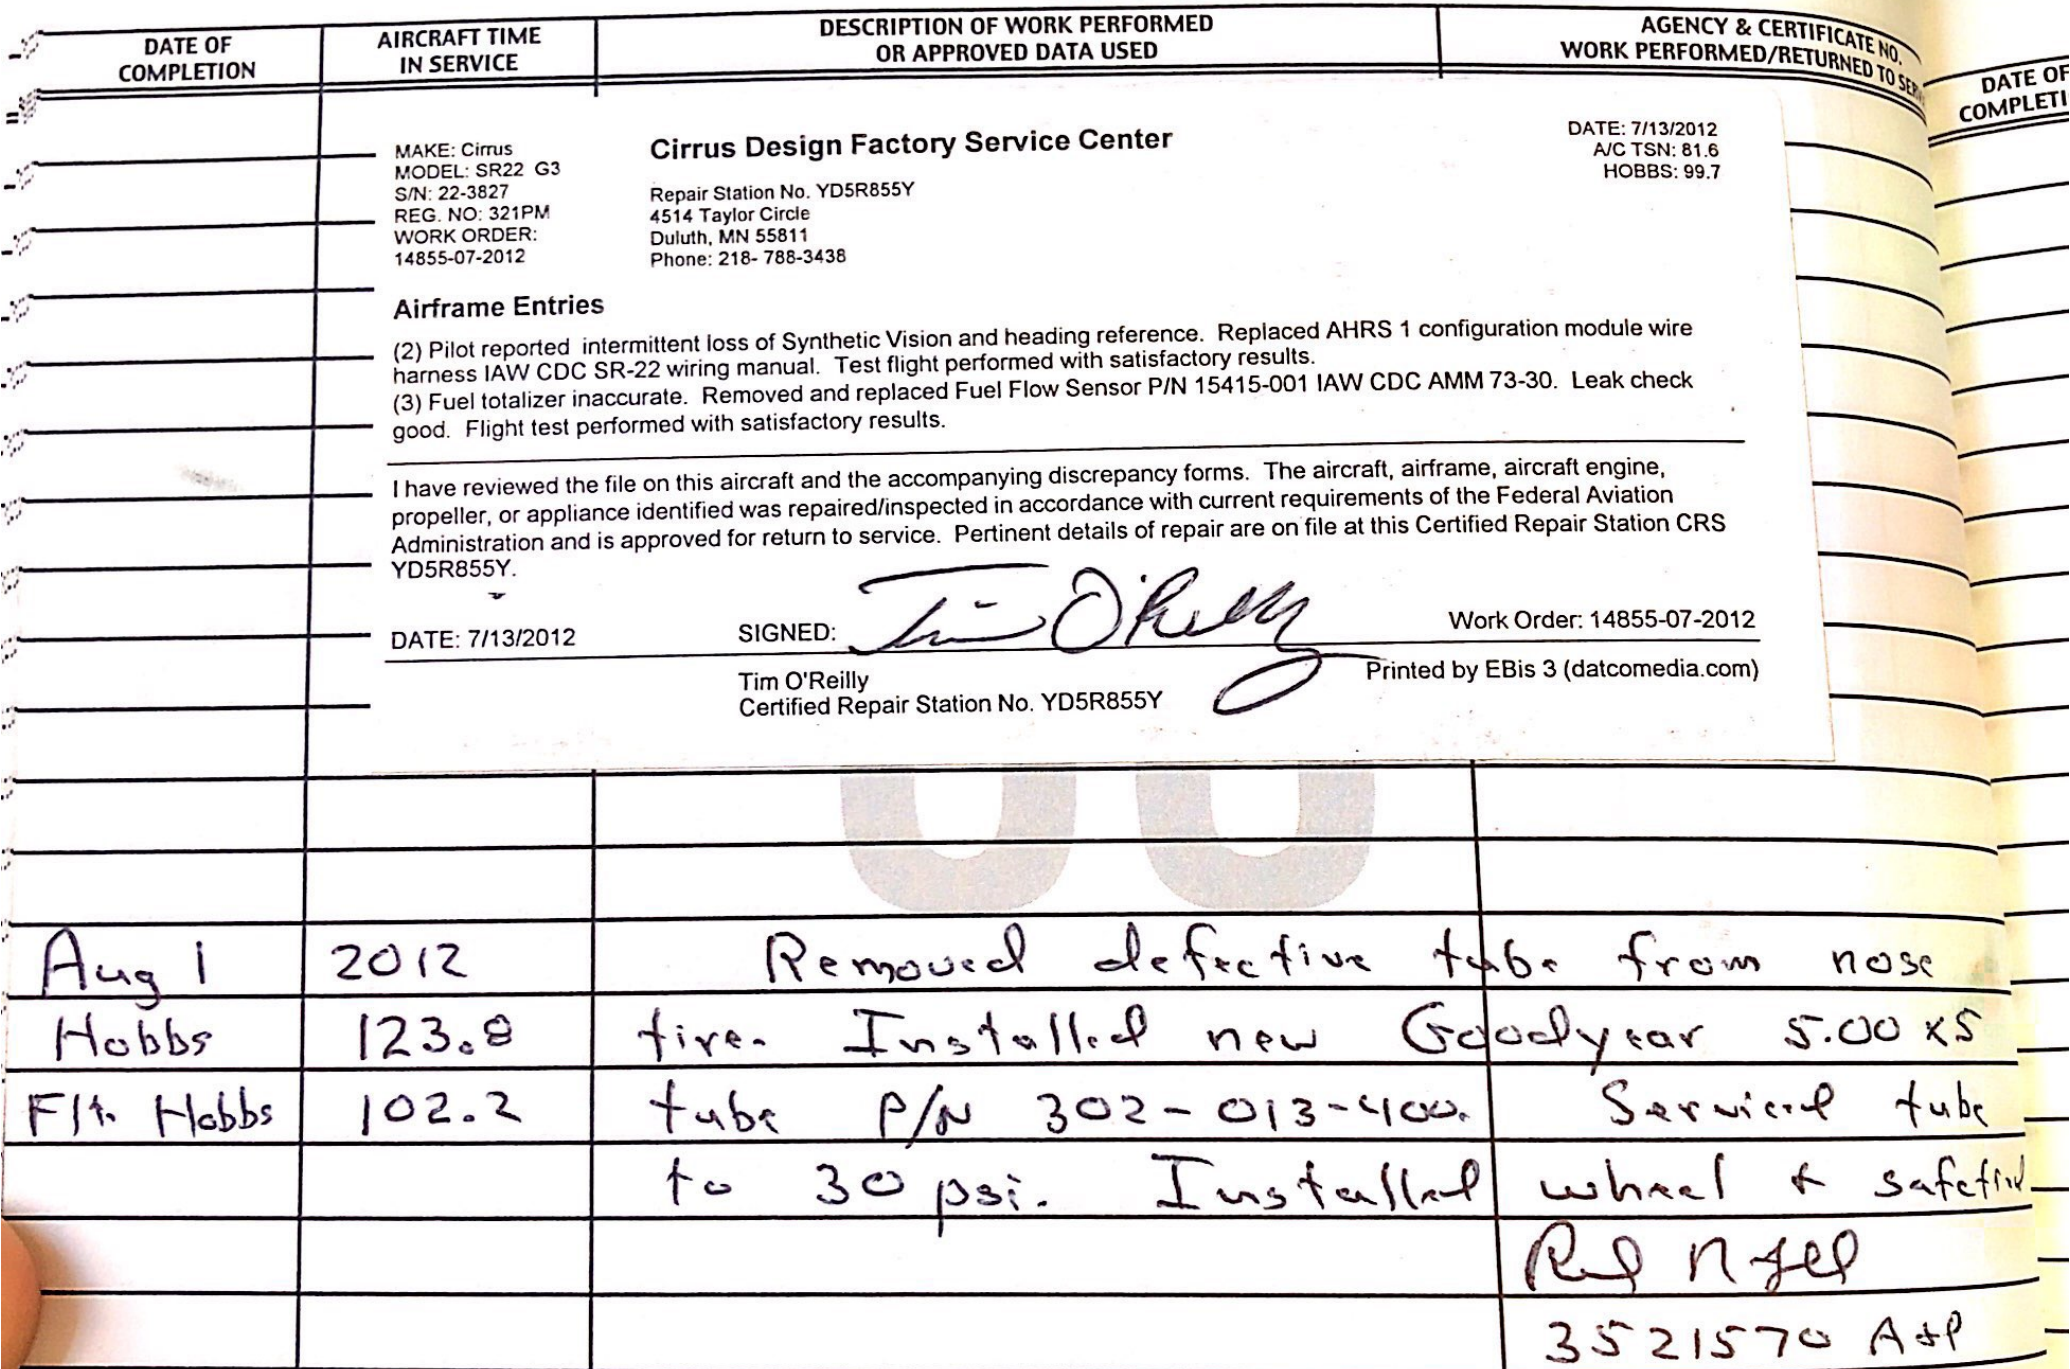 DATE OF
COMPLETION
AIRCRAFT TIME
IN SERVICE
DESCRIPTION OF WORK PERFORMED
OR APPROVED DATA USED
AGENCY & CERTIFICATE NO.
WORK PERFORMED/RETURNED TO
DATE OF
COMPLETI
MAKE: Cirrus
MODEL: SR22 G3
S/N: 22-3827
REG. NO: 321PM
WORK ORDER:
14855-07-2012
Cirrus Design Factory Service Center
Repair Station No. YD5R855Y
4514 Taylor Circle
Duluth, MN 55811
Phone: 218- 788-3438
DATE: 7/13/2012
A/C TSN: 81.6
HOBBS: 99.7
Airframe Entries
(2) Pilot reported intermittent loss of Synthetic Vision and heading reference. Replaced AHRS 1 configuration module wire
harness IAW CDC SR-22 wiring manual. Test flight performed with satisfactory results.
(3) Fuel totalizer inaccurate. Removed and replaced Fuel Flow Sensor P/N 15415-001 IAW CDC AMM 73-30. Leak check
good. Flight test performed with satisfactory results.
I have reviewed the file on this aircraft and the accompanying discrepancy forms. The aircraft, airframe, aircraft engine,
propeller, or appliance identified was repaired/inspected in accordance with current requirements of the Federal Aviation
Administration and is approved for return to service. Pertinent details of repair are on file at this Certified Repair Station CRS
YD5R855Y.
DATE: 7/13/2012
SIGNED: Tim O'Reilly
Work Order: 14855-07-2012
Tim O'Reilly
Certified Repair Station No. YD5R855Y
Printed by EBis 3 (datcomedia.com)
Aug 1 2012 Removed defective tube from nose
Hobbs 123.8 tire. Installed new Goodyear 5.00 x5
Flt. Hobbs 102.2 tube P/N 302-013-400. Serviced tube
to 30 psi. Installed wheel & safetied
3521570 A&P